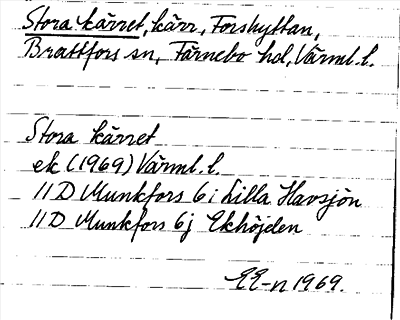 Stora kärret, kärr, Forshyttan,
Brattfors sn, Färnebo hd, Värml. l.
Stora kärret
ek (1969) Värml. l.
11D Munkfors 6i Lilla Havsjön
11D Munkfors 6j Ekhöjden
EE-n 1969.